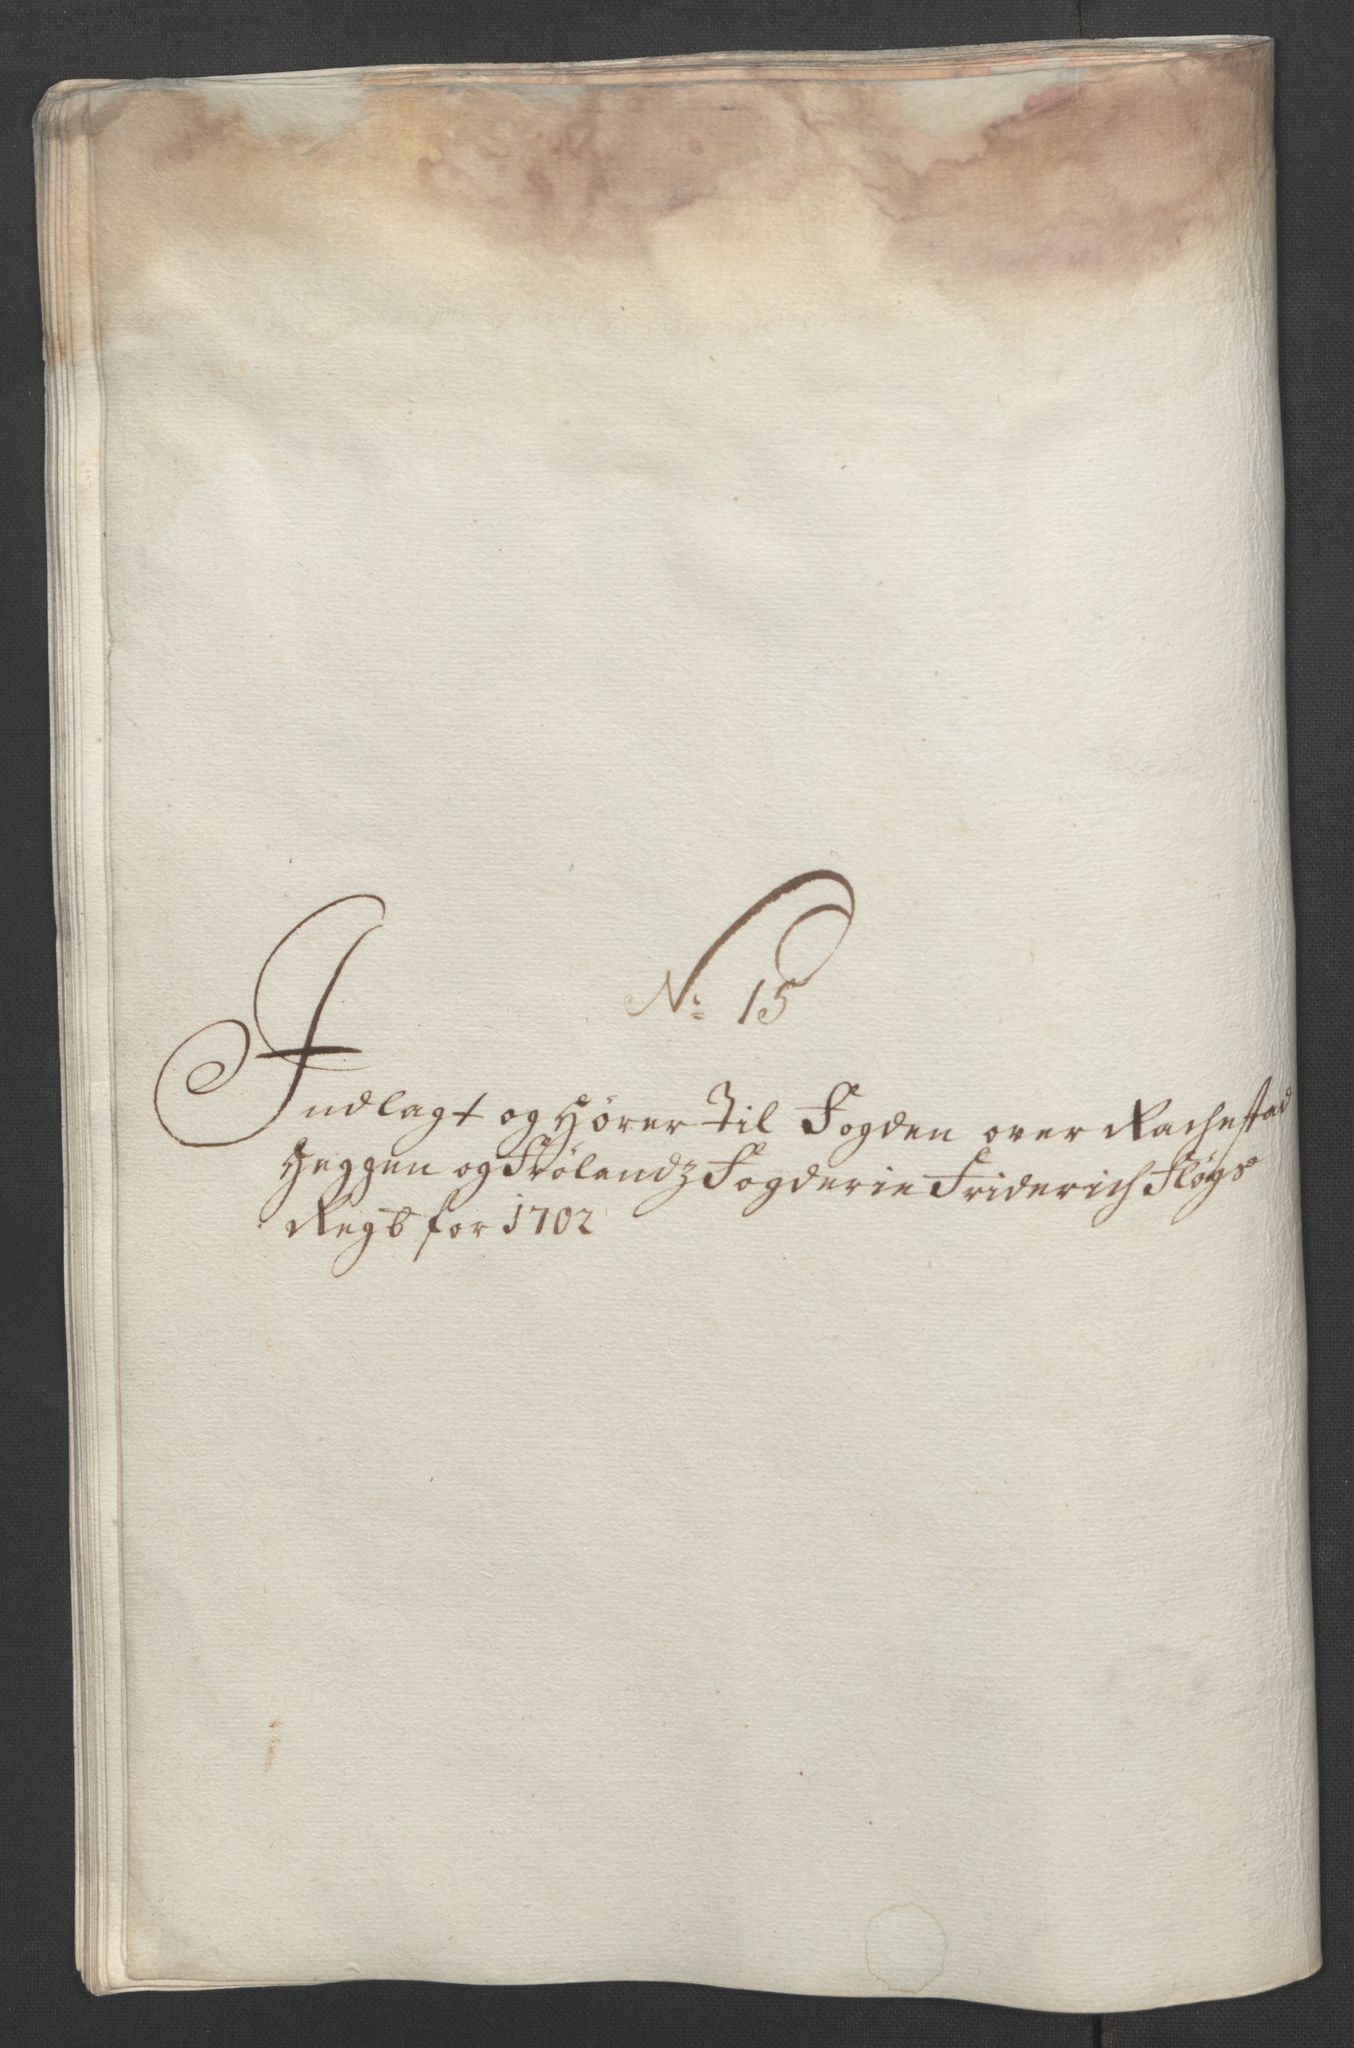 No: 15
Indlagt og Hører Til Fogden over Rachestad
Heggen og Frølandz Fogderie Friderich Fløgs
Regb for 1702